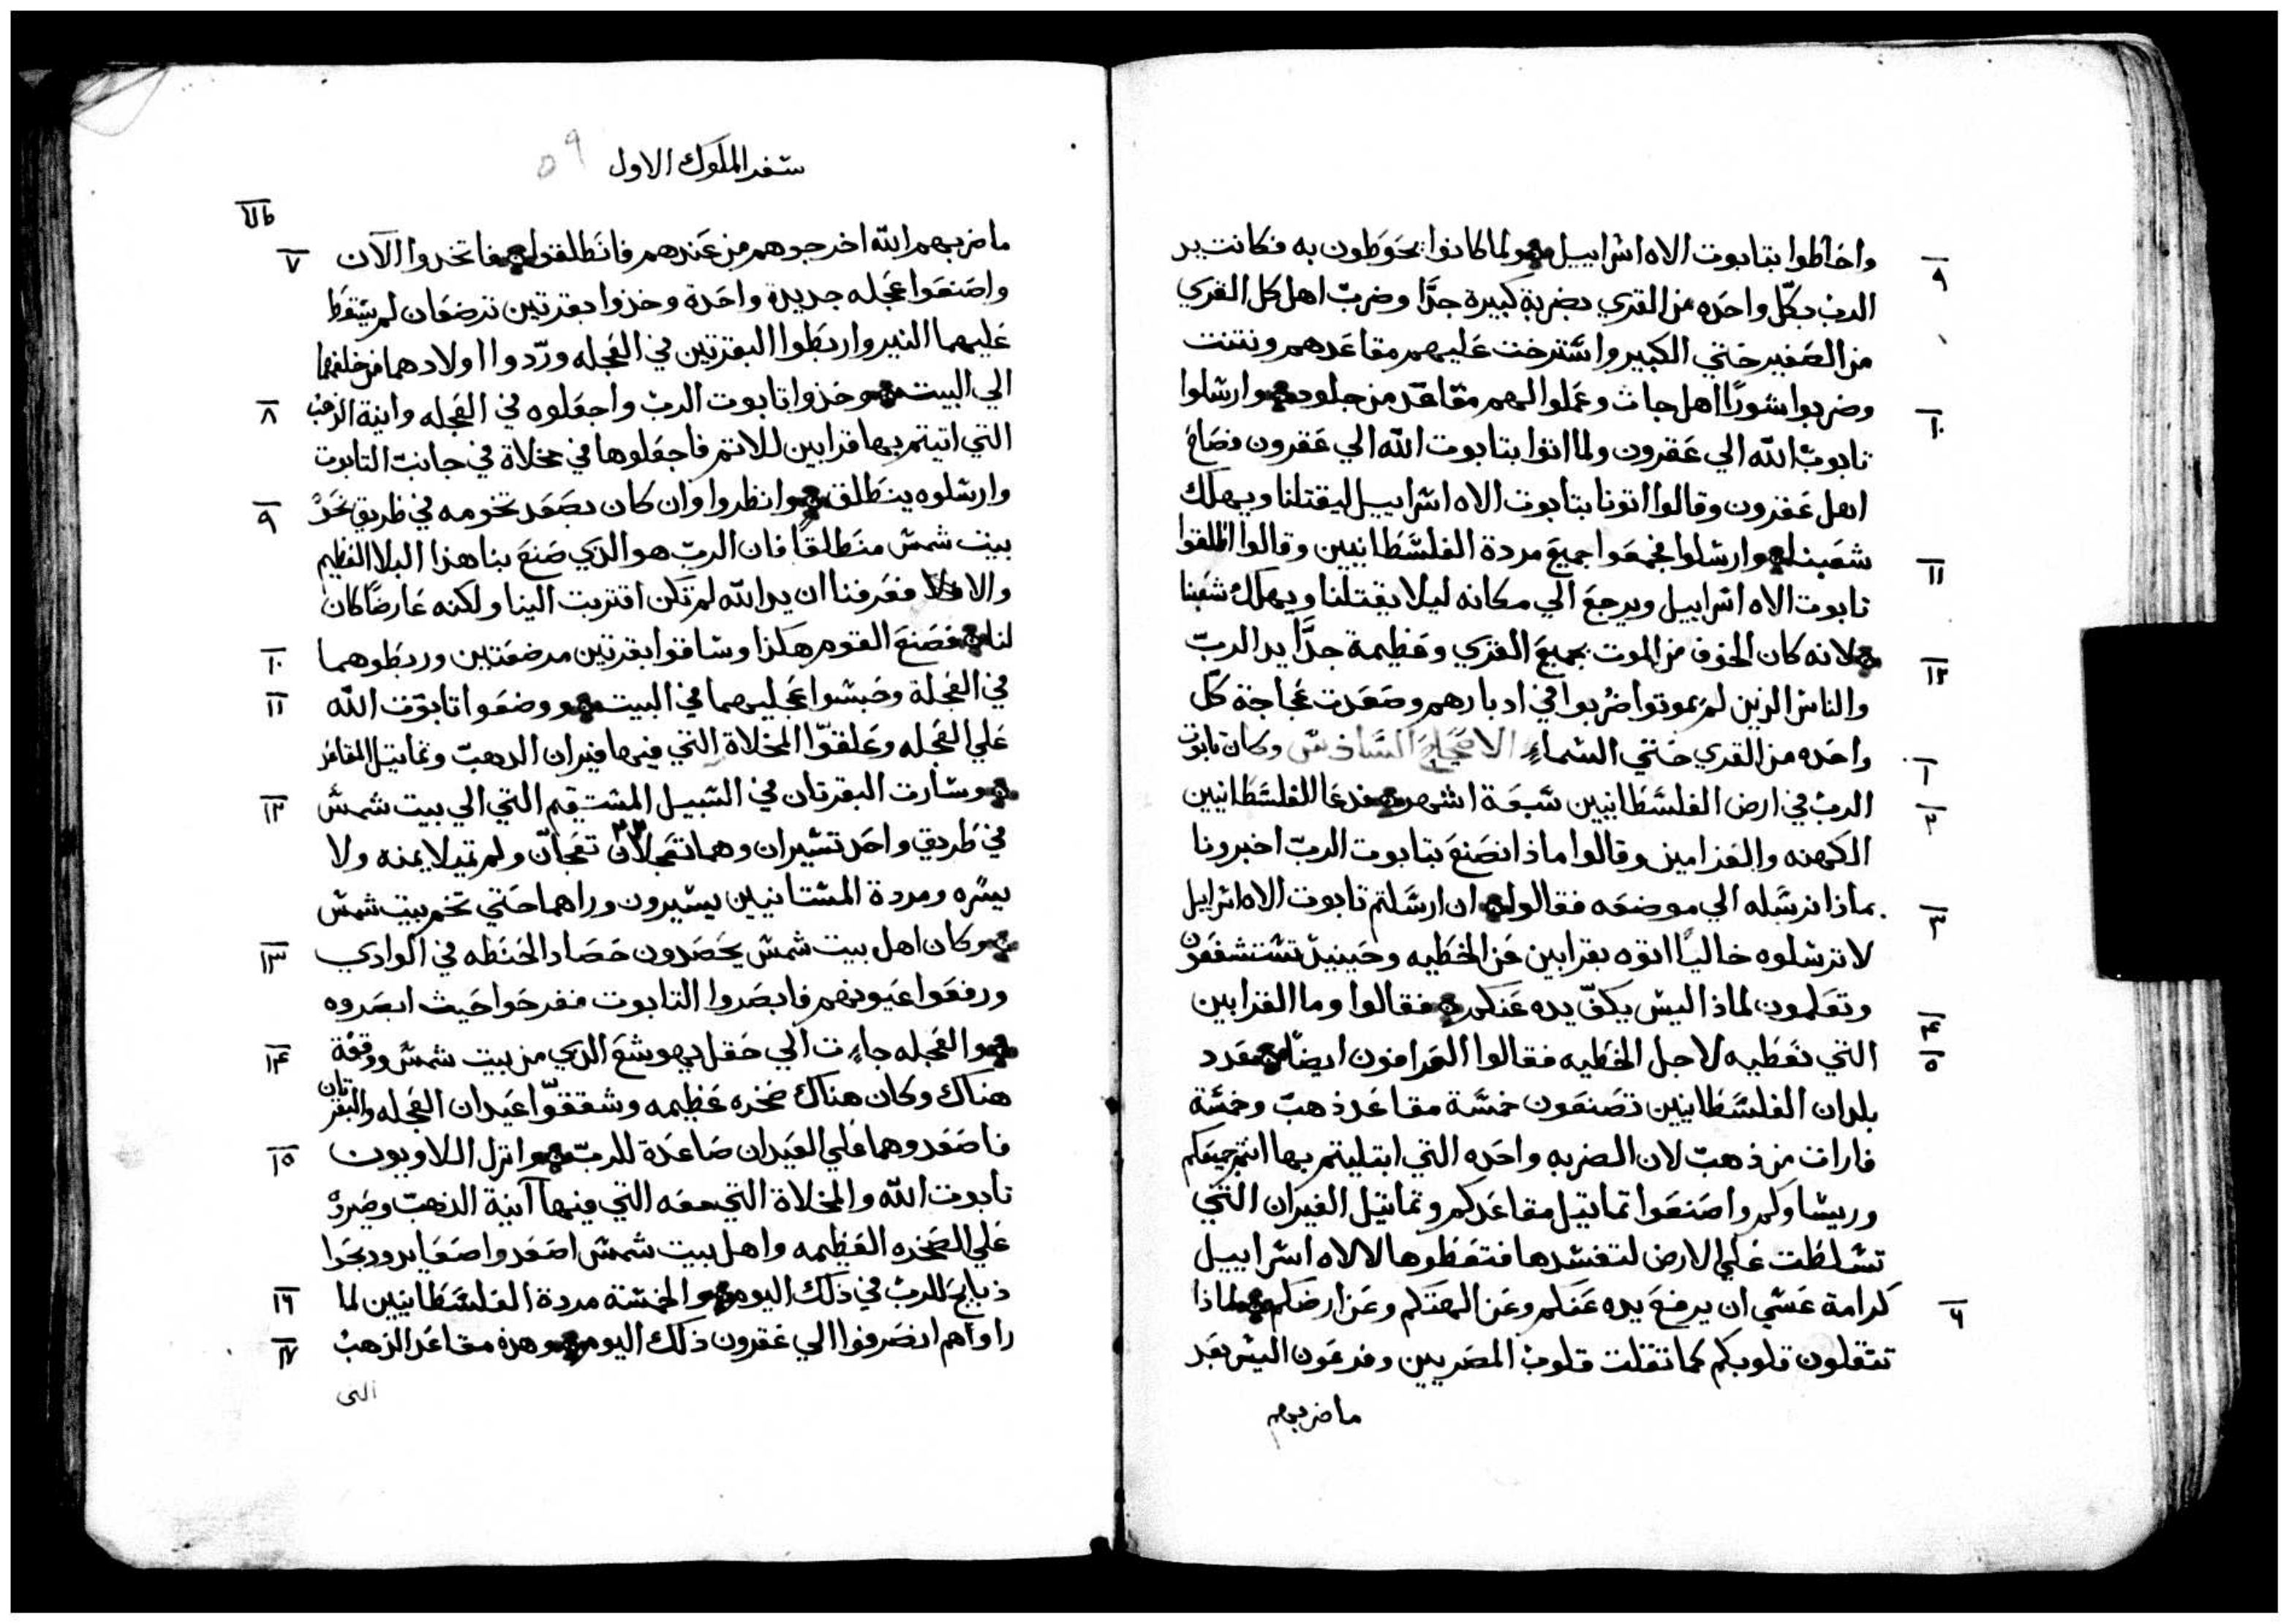 واحاطوا بتابوت الاه اسراييل ولما كانوا يحوطون به فكانت يد
٩
الرب بكل واحده من القري بضربة كبيرة جدًا وضرب اهل كل القري
من الصغير حتي الكبير واسترخت عليهم مقاعدهم ونتنت
وضربوا شورًا اهل جات وعملوا لهم مقاعد من جلود وارسلوا
١٠
تابوت الله الي عقرون ولما اتوا بتابوت الله الي عقرون فصاح
اهل عقرون وقالوا اتونا بتابوت الاه اسراييل ليقتلنا ويهلك
شعبنا وارسلوا فجمعوا جميع مردة الفلسطانيين وقالوا اطلقوا
١١
تابوت الاه اسراييل ويرجع الي مكانه ليلا يقتلنا ويهلك شعبنا
لانه كان الخوف من الموت بجميع القري وعظيمة جدًا يد الرب
١٢
والناس الذين لم يموتوا ضربوا في ادبارهم وصعدت عجاجة كل
واحده من القري حتي السماء الاصحاح السادس وكان تابوت
١
الرب في ارض الفلسطانيين سبعة اشهر فدعا الفلسطانيين
٢
الكهنه والعزامين وقالوا ماذا نصنع بتابوت الرب اخبرونا
بماذا نرسله الي موضعه فقالوا ان ارسلتم تابوت الاه اسراييل
٣
لا ترسلوه خاليًا اتوه بقرابين عن الخطيه وحينيذ تستشفون
وتعلمون لماذا ليس يكف يده عنكم فقالوا وما القرابين
٤
التي نعطيه لاجل الخطيه فقالوا العرافون ايضًا بعدد
٥
بلدان الفلسطانيين تصنعون خمسة مقاعد ذهب وخمسة
فارات من ذهب لان الضربه واحده التي ابتليتم بها انتم جميعكم
وريساوكم واصنعوا تماتيل مقاعدكم وتماتيل الفيران التي
تسلطت علي الارض لتفسدها فتعطوها لالاه اسراييل
كرامة عسي ان يرفع يده عنكم وعن الهتكم وعن ارضكم لماذا
٦
تتقلون قلوبكم كما تقلت قلوب المصريين وفرعون اليس بعد
ما ضربهم
سفر الملوك الاول ٥٩
ما ضربهم الله اخرجوهم من عندهم فانطلقوا فاتخدوا الآن
٧
واصنعوا عجله جديدة واحدة وخذوا بقرتين ترضعان لم يسقط
عليهما النير واربطوا البقرتين في العجله وردوا اولادهما من خلفهما
الي البيت وخذوا تابوت الرب واجعلوه في العجله وانية الذهب
٨
التي اتيتم بها قرابين للاتم فاجعلوها في مخلاة في جانب التابوت
وارسلوه ينطلق وانظروا وان كان يصعد تخومه في طريق نحو
٩
بيت شمس منطلقًا فان الرب هو الذي صنع بنا هذا البلا العظيم
والا فعرفنا ان يد الله لم تكن اقتربت الينا ولكنه عارضًا كان
لنا فصنع القوم هكذا وساقوا بقرتين مرضعتين وربطوهما
١٠
في العجلة وحبسوا عجليهما في البيت ووضعوا تابوت الله
١١
علي العجله وعلقوا المخلاة التي فيها فيران الدهب وتماتيل المقاعد
وسارت البقرتان في السبيل المستقيم التي الي بيت شمس
١٢
في طريق واحد تسيران وهما تعجلان تعجان ولم تميلا يمنه ولا
يسره ومردة الفلستانيين يسيرون وراهما حتي تخم بيت شمس
وكان اهل بيت شمس يحصدون حصاد الحنطه في الوادي
١٣
ورفعوا عيونهم فابصروا التابوت ففرحوا حيث ابصروه
والعجله جاءت الي حقل يهوشع الذي من بيت شمس ووقفة
١٤
هناك وكان هناك صخره عظيمه وشققوا عيدان العجله والبقرتان
فاصعدوهما علي العيدان صاعدة للرب وانزل اللاويون
١٥
تابوت الله والمخلاة التي معه التي فيها آنية الذهب وصيروه
علي الصخره العظيمه واهل بيت شمس اصعدوا صعايد ودبحوا
ذبايح للرب في ذلك اليوم والخمسة مردة الفلسطانيين لما
١٦
راواهم انصرفوا الي عقرون ذلك اليوم وهذه مقاعد الذهب
١٧
التي